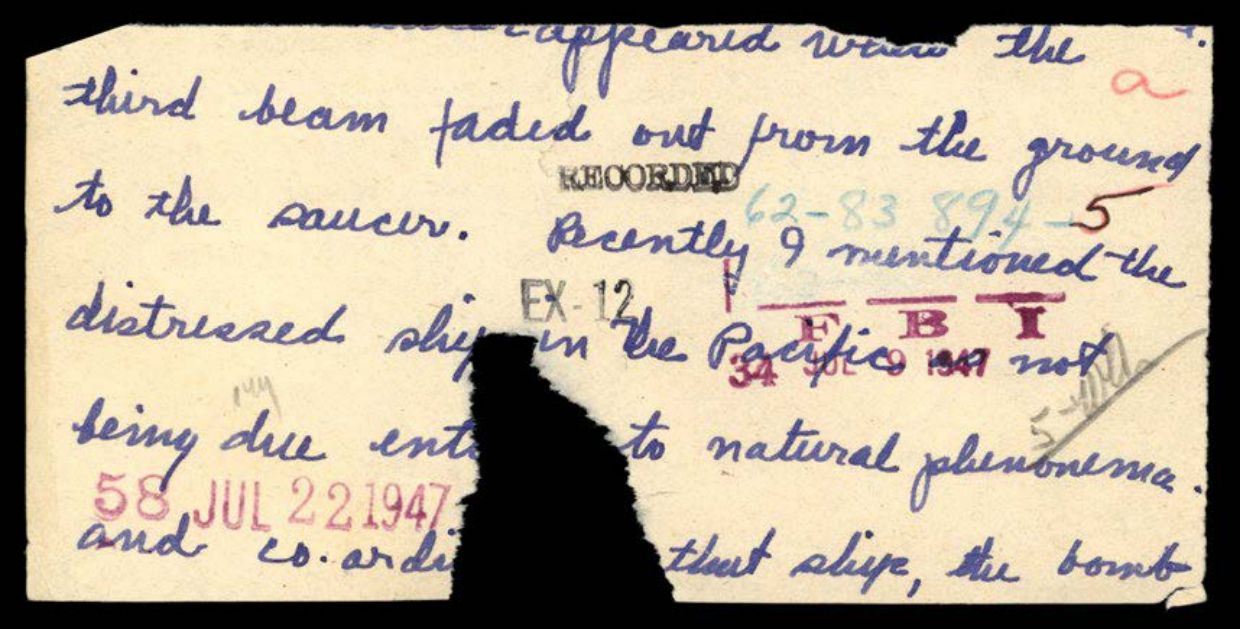 appeared when the
a
third beam faded out from the ground
RECORDED
to the saucer. Recently I mentioned the
62-83 894-5
EX-12
F B I
distressed ship in the Pacific as not
34 JUL 9 1947
being due ent to natural phenonema.
58 JUL 22 1947
and co.ordi that ship, the bomb